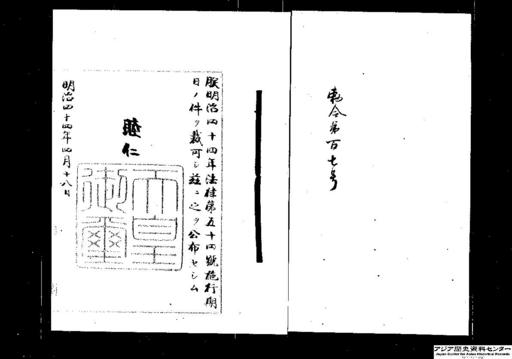 勅令第百七号
朕明治四十四年法律第五十四號施行期
日ノ件ヲ裁可シ茲ニ之ヲ公布セシム
睦仁
天皇
御璽
明治四十四年四月十八日
アジア歴史資料センター
Japan Center for Asian Historical Records